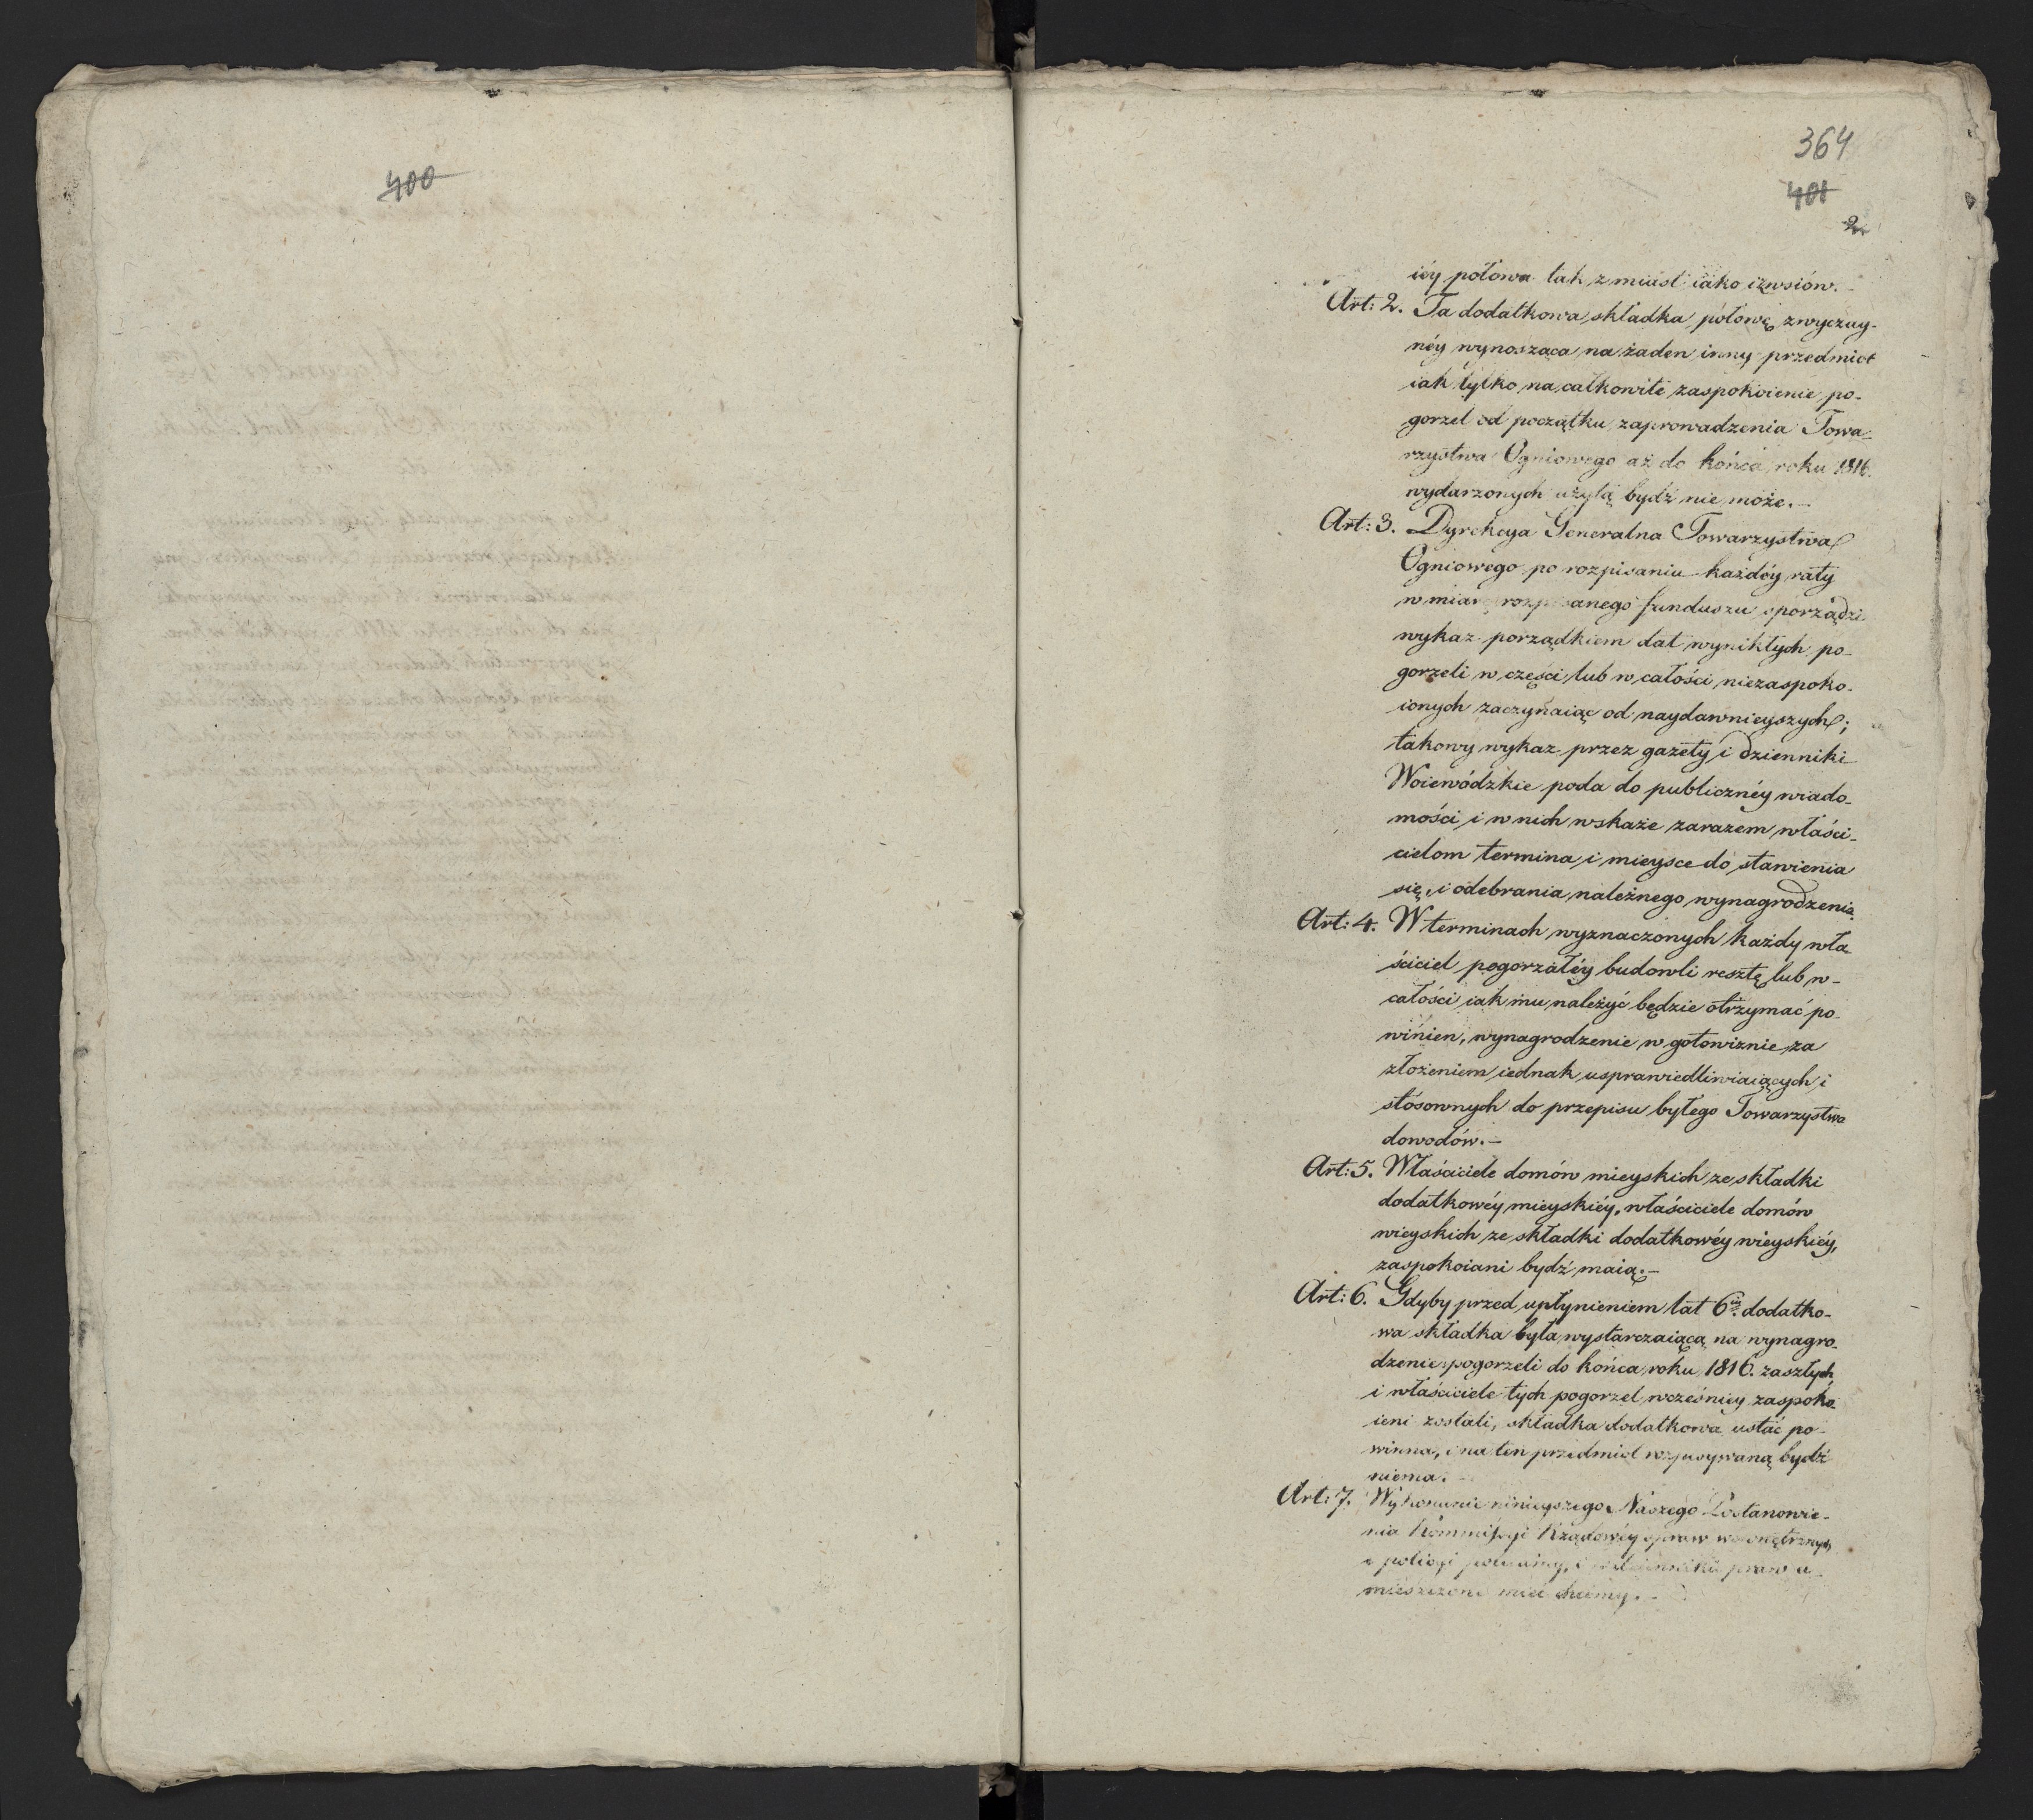 400
364
401
2
iéy połowa tak z miast iako i zwsiów.-
Art: 2. Ta dodatkowa składka połowę zwyczay-
néy wynosząca na żaden inny przedmiot
iak tylko na całkowite zaspokoienie po-
gorzel od początku zaprowadzenia Towa-
rzystwa Ogniowego aż do końca roku 1816.
wydarzonych użytą bydź nie może.-
Art: 3. Dyrekcya Generalna Towarzystwa
Ogniowego po rozpisaniu każdéy raty
w miarę rozpisanego funduszu sporządzi
wykaz porządkiem dat wynikłych po-
gorzeli w części lub w całości niezaspoko-
ionych zaczynaiąc od naydawnieyszych;
takowy wykaz przez gazety i dzienniki
Woiewódzkie poda do publicznéy wiado-
mości i w nich wskaże zarazem właści-
cielom termina i mieysce do stawienia
się, i odebrania należnego wynagrodzenia.
Art: 4. W terminach wyznaczonych każdy wła
ściciel pogorzałéy budowli resztę lub w-
całości iak mu należyć będzie otrzymać po-
winien, wynagrodzenie w gotowiznie za
złożeniem iednak usprawiedliwiaiących i
stósownych do przepisu byłego Towarzystwa
dowodów.-
Art: 5. Właściciele domów mieyskich ze składki
dodatkowéy mieyskiéy, właściciele domów
wieyskich ze składki dodatkowéy wieyskiéy,
zaspokoiani bydź maią.-
Art: 6. Gdyby przed upłynieniem lat 6ciu dodatko-
wa składka była wystarczaiącą na wynagro-
dzenie pogorzeli do końca roku 1816. zaszłych
i właściciele tych pogorzel wcześniey zaspoko
ieni zostali, składka dodatkowa ustać po-
winna, i na ten przedmiot rozpisywaną bydź
niema.-
Art: 7. Wykonanie ninieyszego Naszego Postanowie-
nia Kommissyi Rządowéy spraw wewnętrznych
i policyi polecamy, i w dzienniku praw u-
mieszczone mieć chcemy.-